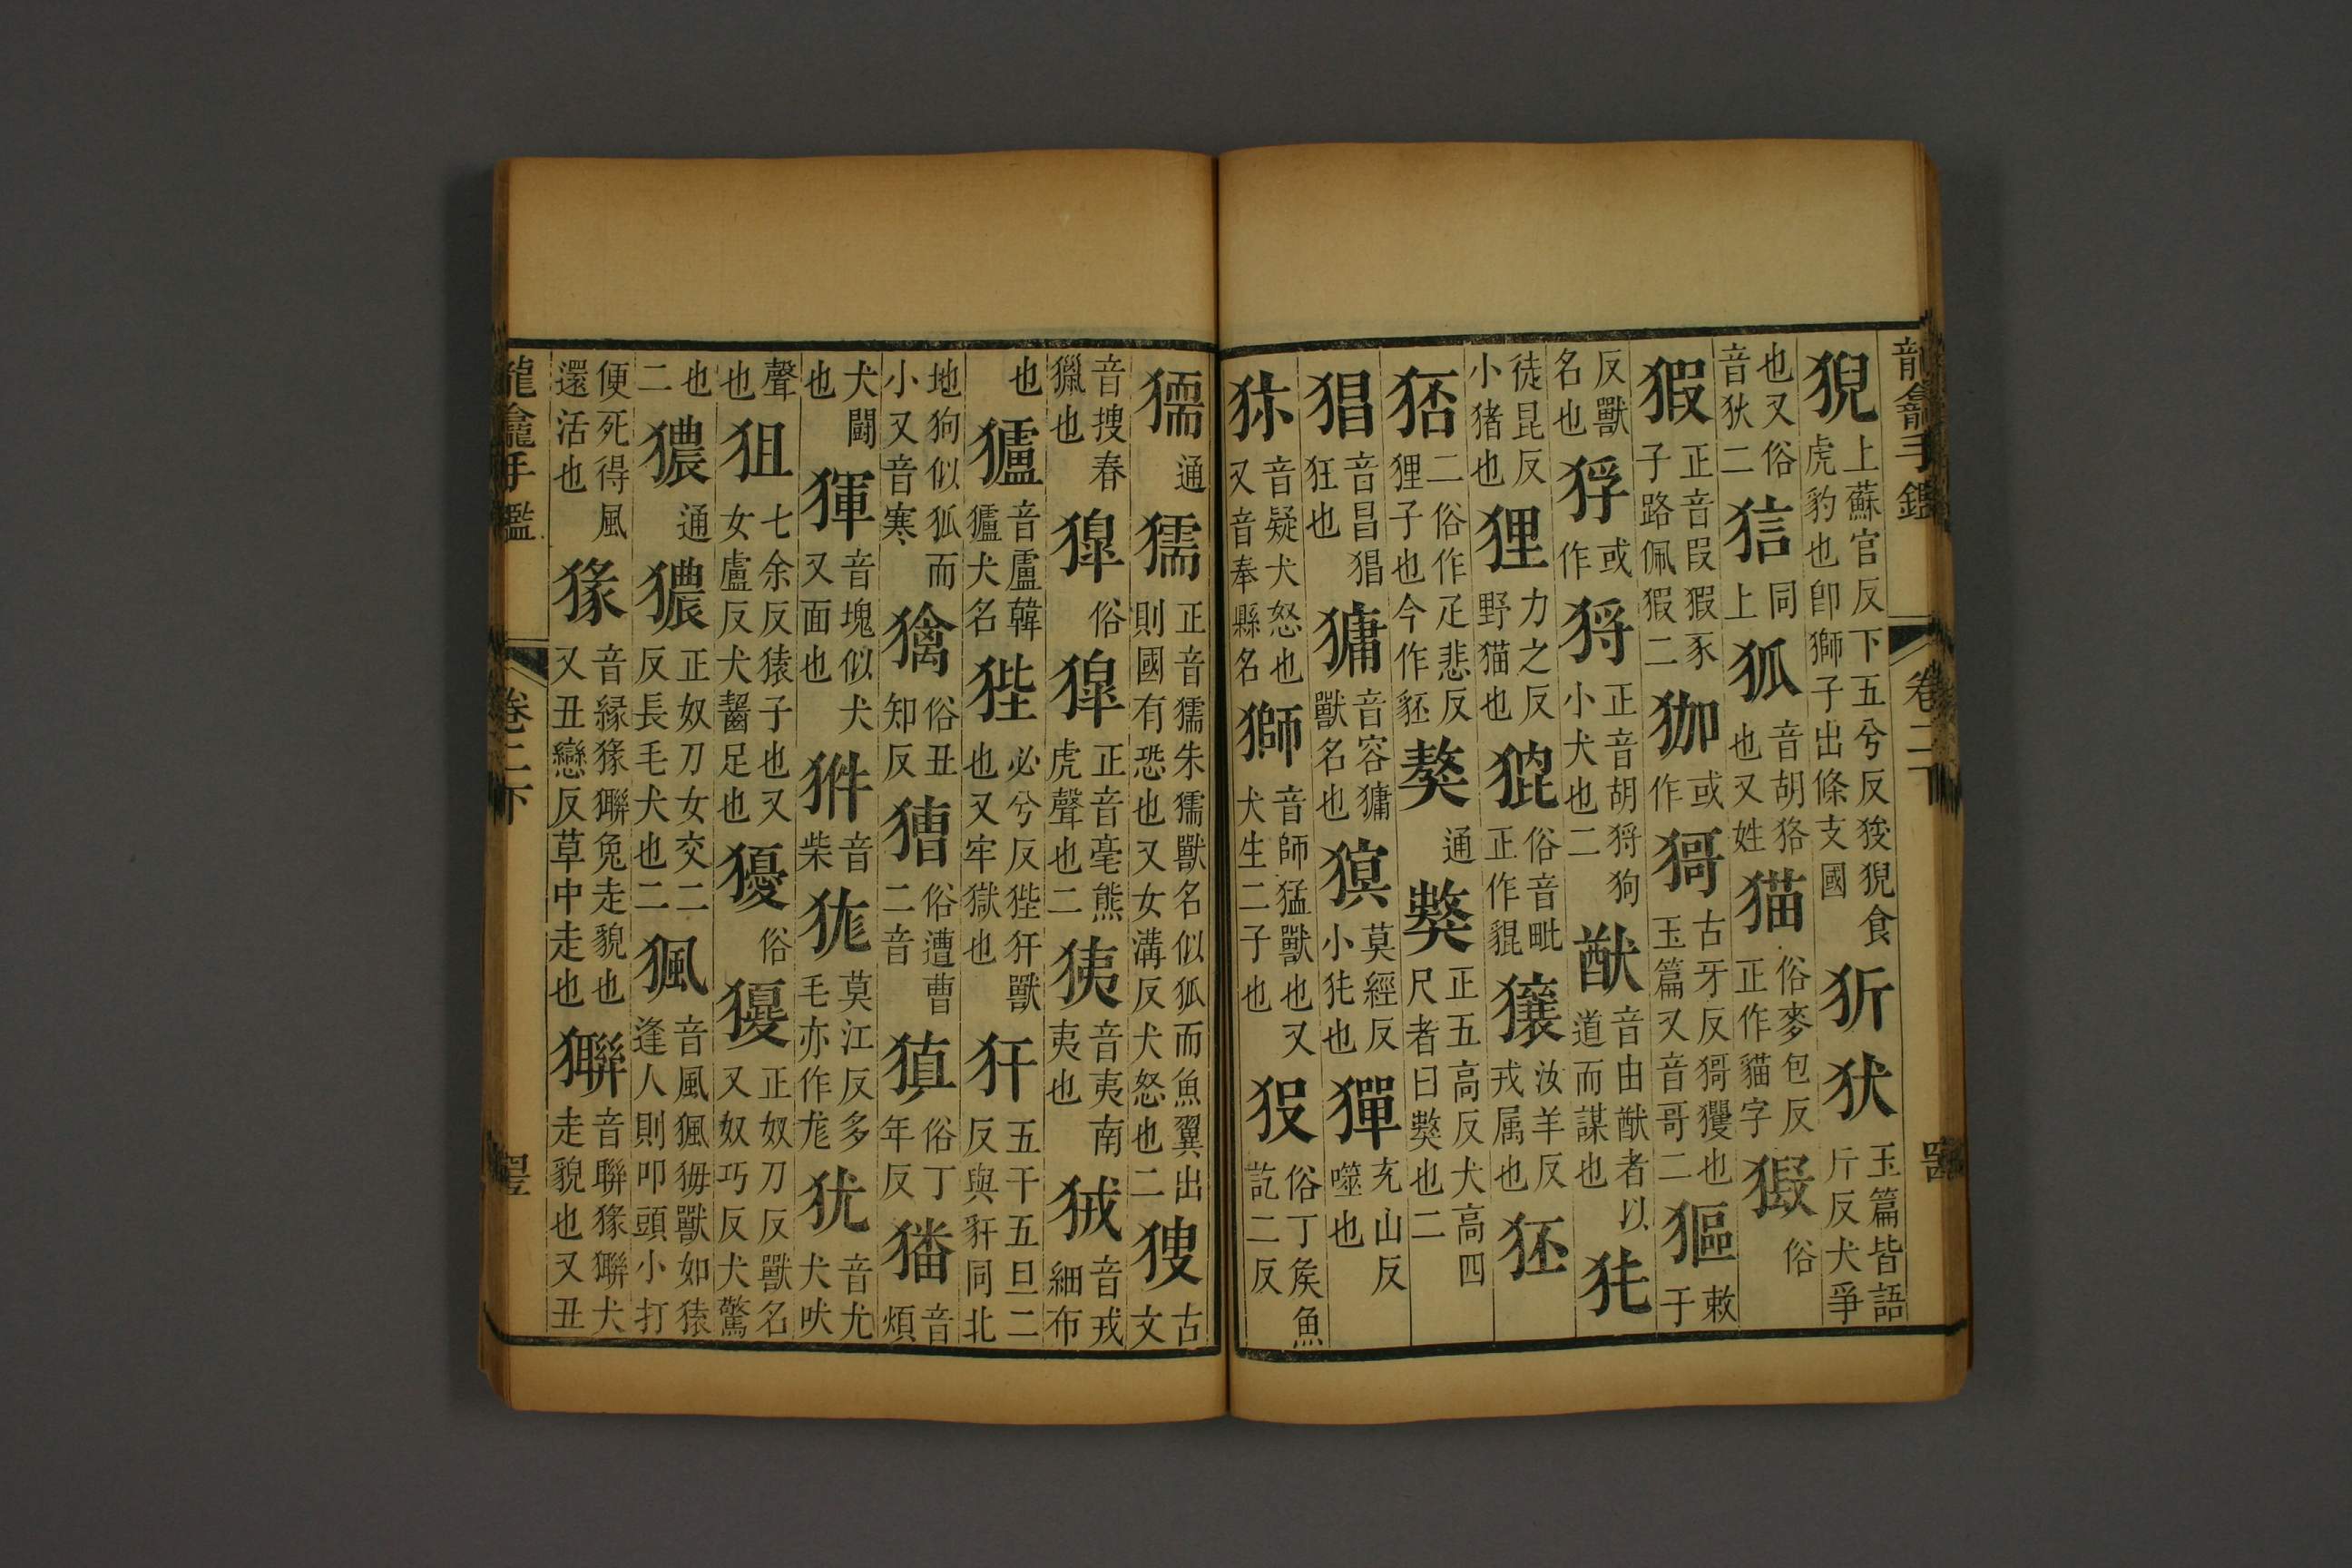 龍龕手鑑 卷二下
猊上蘇官反下五兮反狻猊食虎豹也卽獅子出條支國㹞犾玉篇皆語斤反犬爭
也又俗音狄二㹤同上狐音胡狐狢也又姓猫俗麥包反正作貓字俗
猳正音叚猳豕子路佩猳二㹢或作㺊古牙反㺊玃也玉篇又音哥二㺏敕于
反獸名也㹾或作㹿正音胡㹿狗小犬也二猷音由猷者以道而謀也㹠
徒昆反小猪也狸力之反野猫也㹃俗音毗正作貔獽汝羊反戎属也狉
二俗作疋悲反狸子也今作豾獒通正五高反犬高四尺者曰獒也二
猖音昌猖狂也㺎音容獸名也㺂莫經反小㹠也㺗充山反噬也
音疑犬怒也又音奉縣名獅音師猛獸也又犬生二子也俗丁矦魚訖二反
㹘通獳正音獳朱獳獸名似狐而魚翼出則國有恐也又女溝反犬怒也二獀古文
音搜春獵也㹧俗獆正音毫熊虎聲也二㹫音夷南夷也狨音戎細布
也獹音盧韓獹犬名狴必兮反狴犴獸也又牢獄也犴五干五旦二反與豻同北
地狗似狐而小又音寒㺒俗丑知反㺐俗遭曹二音㺉俗丁年反㺕音煩
犬鬭也㹆音塊似犬又面也音柴狵莫江反多毛亦作尨犹音尤犬吠
聲也狙七余反猿子也又女盧反犬齧足也獶俗正奴刀反獸名又奴巧反犬驚
也二獳通獳正奴刀女交二反長毛犬也二猦音風猦㺃獸如猿逢人則叩頭小打
便死得風還活也猭音緣猭㺦兔走貌也又丑戀反草中走也㺦音聯猭㺦犬走貌也又丑
龍龕手鑑 卷二下